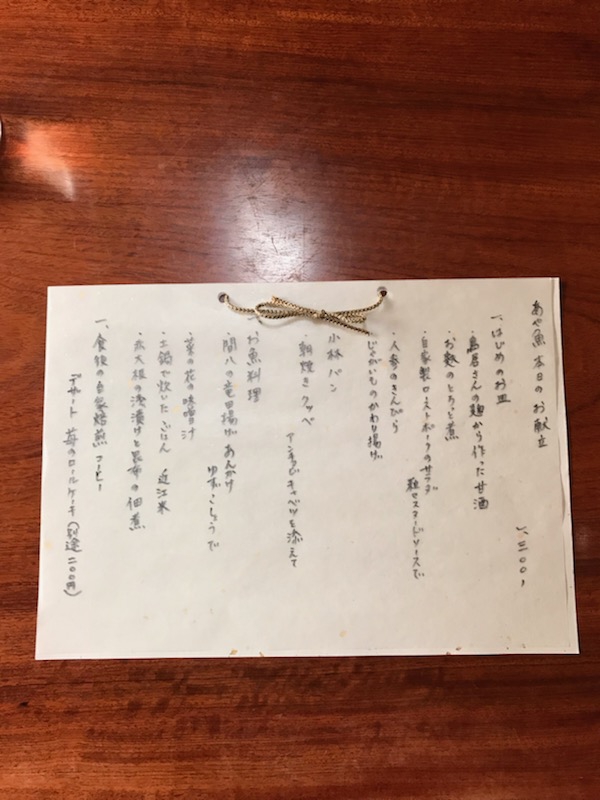 あや魚 本日の お献立
一、三〇〇、
一、はじめのお皿
・鳥居さんの麹から作った甘酒
・お麩のとろっと煮
・自家製ローストポークのサラダ
粒マスタードソースで
・人参のきんぴら
じゃがいものかわり揚げ
小林パン
・朝焼き クッペ
アンチョビキャベツを添えて
お魚料理
・間八の竜田揚げ あんかけ
ゆずこしょうで
・菜の花の味噌汁
・土鍋で炊いた ごはん 近江米
・赤大根の浅漬けと昆布の佃煮
一、食後の自家焙煎 コーヒー
デザート 苺のロールケーキ(別途二〇〇円)